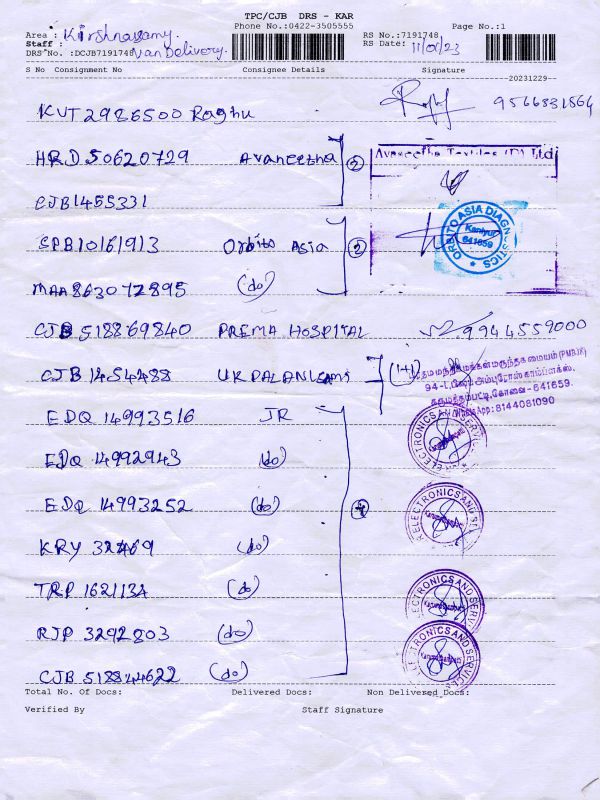 TPC/CJB DRS - KAR
Phone No.:0422-3505555 Page No.:1
Area : Kirshnasamy. RS No.:7191748
Staff : RS Date: 11/01/23
DRS No. :DCJB7191748 Van Delivery.
S No Consignment No Consignee Details Signature
20231229
KVT2986500 Raghu 9566831564
HRD 50620729 Avaneetha (2) Avaneetha Textiles (P) Ltd
CJB1455331
SPB10161913 Orbito Asia (2) ORBITO ASIA DIAGNOSTICS Kaniyur 641659
MAA863072895 (do)
CJB 518869840 PREMA HOSPITAL 9944559000
CJB 1454488 UK PALANISAMI (1+1) மக்கள் மருந்தகமையம்
கருமத்தம்பட்டி,கோவை - 641659.
WhatsApp : 8144081090
EDQ 14993516 JR ELECTRONICS AND SERVICE
EDQ 14992943 (do)
EDQ 14993252 (do) ELECTRONICS AND SER
KRY 32469 (do)
TRP 162113A (do) ELECTRONICS AND SERV
RJP 3292803 (do) ELECTRONICS AND SERVICES
CJB 518844622 (do)
Total No. Of Docs: Delivered Docs: Non Delivered Docs:
Verified By Staff Signature